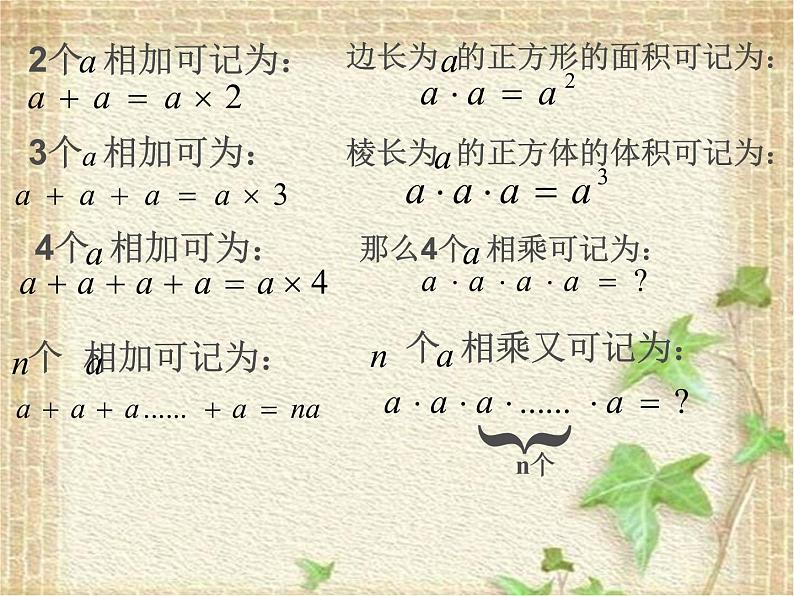 2个a相加可记为：
a + a = a × 2
3个a相加可为：
a + a + a = a × 3
4个a相加可为：
a + a + a + a = a × 4
n个 a相加可记为：
a + a + a...... + a = na
边长为a的正方形的面积可记为：
a · a = a²
棱长为a的正方体的体积可记为：
a · a · a = a³
那么4个a相乘可记为：
a · a · a · a = ?
n个a相乘又可记为：
a · a · a · ...... · a = ?
n个